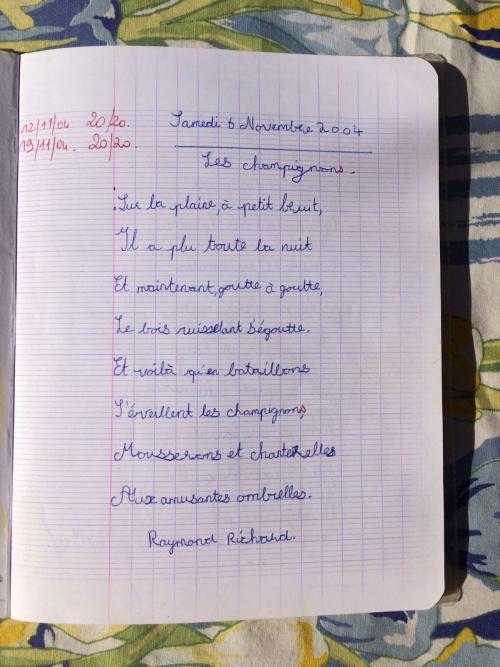 12/11/04 20/20.
19/11/04. 20/20.
Samedi 6 Novembre 2004
Les champignons.
Sur la plaine, à petit bruit,
Il a plu toute la nuit
Et maintenant, goutte à goutte,
Le bois ruisselant s'égoutte.
Et voilà qu'en bataillons
S'éveillent les champignons,
Mousserons et chanterelles
Aux amusantes ombrelles.
Raymond Richard.